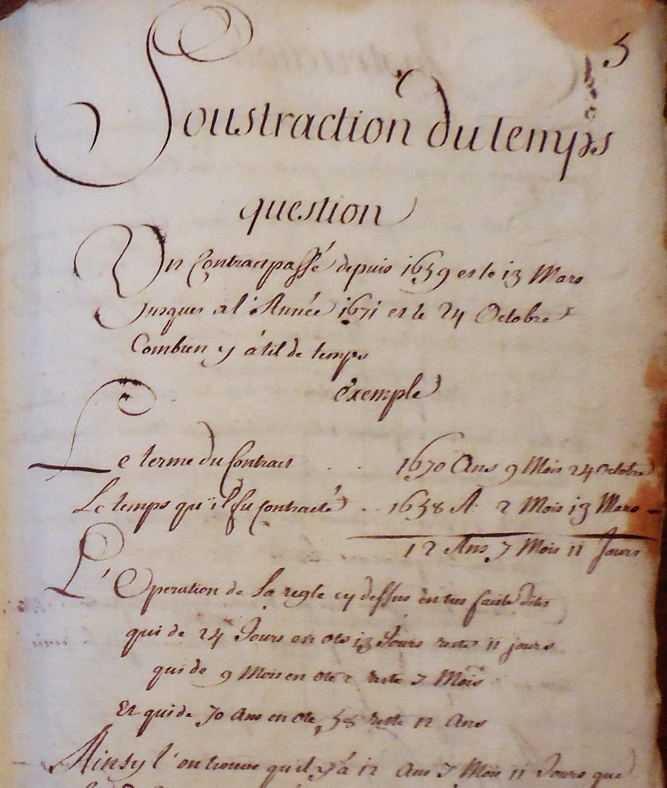 5
Soustraction du temps
question
Un Contract passé depuis 1659 est le 13 Mars
Jusques a l'Année 1671 est le 24 Octobre
Combien y átil de temps
Exemple
Le terme du Contract . . 1670 Ans 9 Mois 24 octobre
Le temps qu'il fu contracté . . 1658 A. 2 Mois 13 Mars
12 Ans 7 Mois 11 Jours
L'Operation de la regle cy dessus en tres facile dites
qui de 24 Jours en ote 13 Jours reste 11 jours
qui de 9 Mois en ote 2 reste 7 Mois
Et qui de 70 Ans en ote 58 reste 12 Ans
Ainsy l'on trouve quil y á 12 Ans 7 Mois 11 Jours que